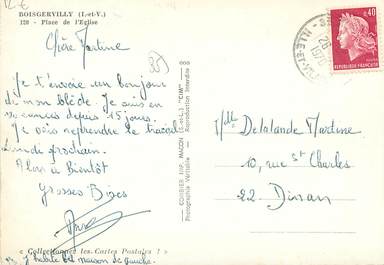 12 €
BOISGERVILLY (I.-et-V.)
120 - Place de l'Eglise
Chère Martine
35
Je t'envoie un bonjour
de mon blède. Je suis en
vacances depuis 15 jours.
Je vais reprendre le travail
Lundi prochain.
Alors à Bientôt
Grosses Bises
« Collectionnez les Cartes Postales ! »
J'habite la maison de gauche.
COMBIER IMP. MACON (S.-et-L.) "CIM"
Photographie Véritable - Reproduction Interdite
ILLE-ET-
0,40
REPUBLIQUE FRANÇAISE
Melle Delalande Martine
10, rue St Charles
22 Dinan